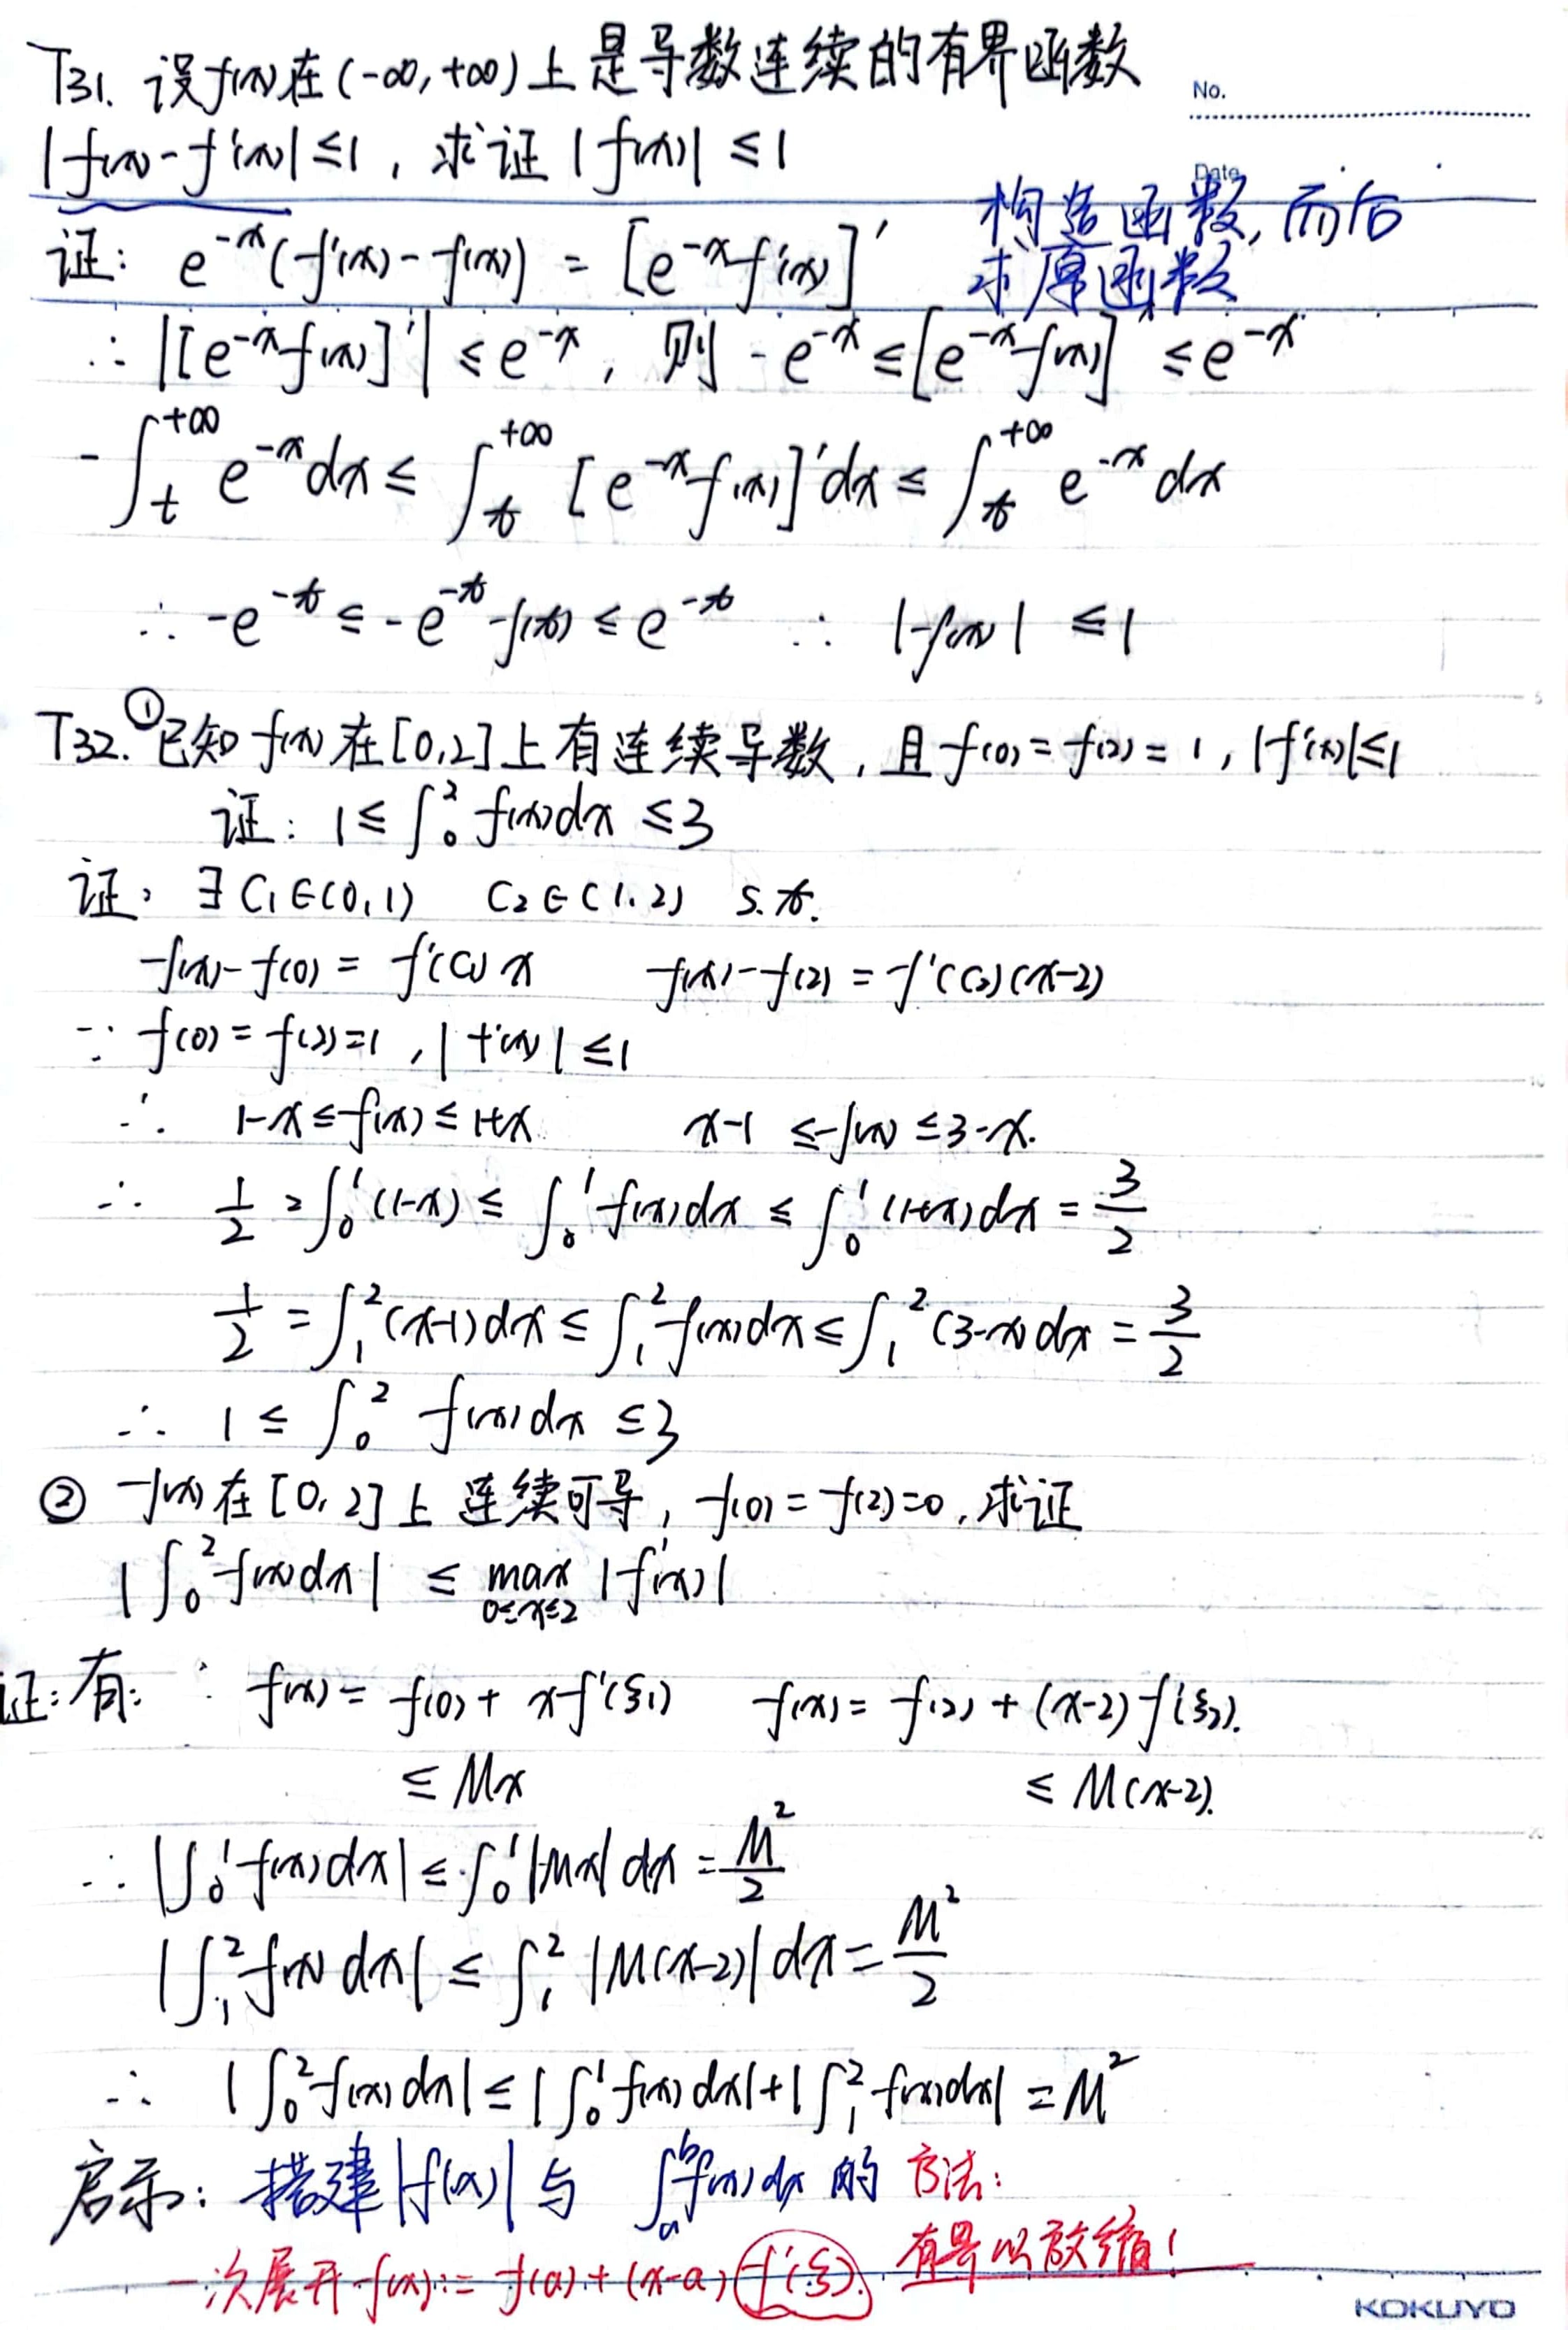 T31. 设f(x)在(-∞,+∞)上是导数连续的有界函数
No.
|f(x)-f'(x)|≤1, 求证 |f(x)| ≤1
Date
构造函数,而后
求原函数
证: e^{-x}(f'(x)-f(x)) = [e^{-x}f(x)]'
∴ |[e^{-x}f(x)]'| ≤ e^{-x}, 则 -e^{-x} ≤ [e^{-x}f(x)]' ≤ e^{-x}
-∫_t^{+∞} e^{-x}dx ≤ ∫_t^{+∞} [e^{-x}f(x)]'dx ≤ ∫_t^{+∞} e^{-x}dx
∴ -e^{-t} ≤ -e^{-t}f(t) ≤ e^{-t} ∴ |f(x)| ≤1
T32.①已知f(x)在[0,2]上有连续导数,且f(0)=f(2)=1, |f'(x)|≤1
证: 1≤∫_0^2 f(x)dx ≤3
证: ∃ C₁∈(0,1) C₂∈(1,2) s.t.
f(x)-f(0)=f'(C₁)x f(x)-f(2)=f'(C₂)(x-2)
∵ f(0)=f(2)=1, |f'(x)|≤1
∴ 1-x≤f(x)≤1+x x-1≤f(x)≤3-x.
∴ 1/2 = ∫_0^1(1-x) ≤ ∫_0^1 f(x)dx ≤ ∫_0^1(1+x)dx = 3/2
1/2 = ∫_1^2(x-1)dx ≤ ∫_1^2 f(x)dx ≤ ∫_1^2(3-x)dx = 3/2
∴ 1 ≤ ∫_0^2 f(x)dx ≤3
② f(x)在[0,2]上连续可导, f(0)=f(2)=0,求证
|∫_0^2 f(x)dx| ≤ max_{0≤x≤2} |f'(x)|
证:有: ∵ f(x)=f(0)+xf'(ξ₁) f(x)=f(2)+(x-2)f'(ξ₂).
≤ Mx ≤ M(x-2).
∴ |∫_0^1 f(x)dx| ≤ ∫_0^1|Mx|dx = M²/2
|∫_1^2 f(x)dx| ≤ ∫_1^2 |M(x-2)|dx = M²/2
∴ |∫_0^2 f(x)dx| ≤ |∫_0^1 f(x)dx|+|∫_1^2 f(x)dx| = M²
启示: 搭建|f(x)|与 ∫_a^b f(x)dx 的方法:
一次展开f(x)=f(a)+(x-a)f'(ξ). 有界以放缩!
KOKUYO